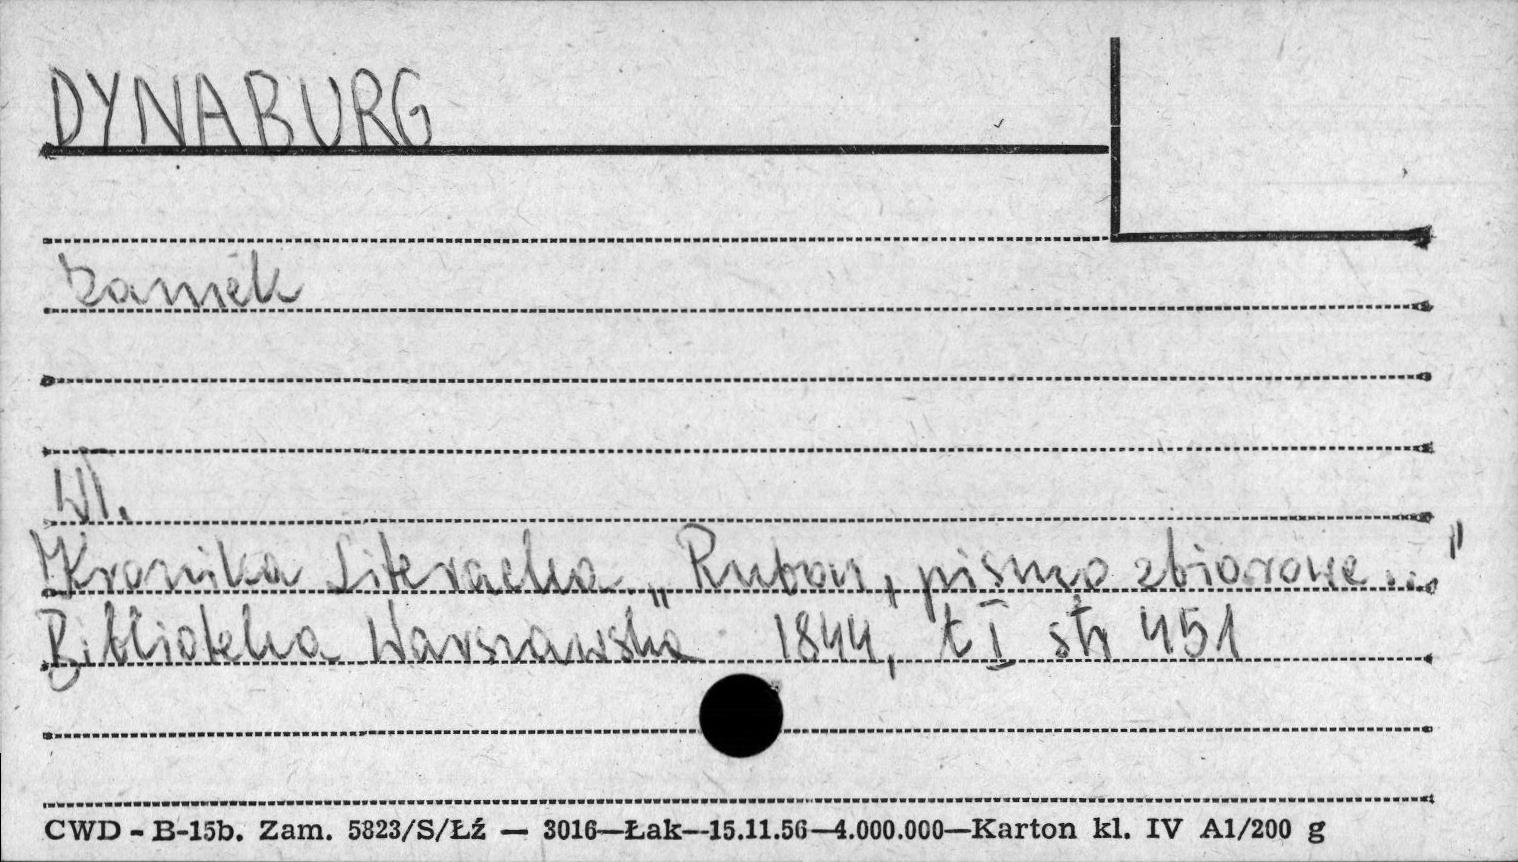 DYNABURG
Zamek
Wł.
Kronika Literacka „Rubon, pismo zbiorowe..."
Biblioteka Warszawska 1844, t I str 451
CWD - B-15b. Zam. 5823/S/Łź — 3016—Łak—15.11.56—4.000.000—Karton kl. IV A1/200 g